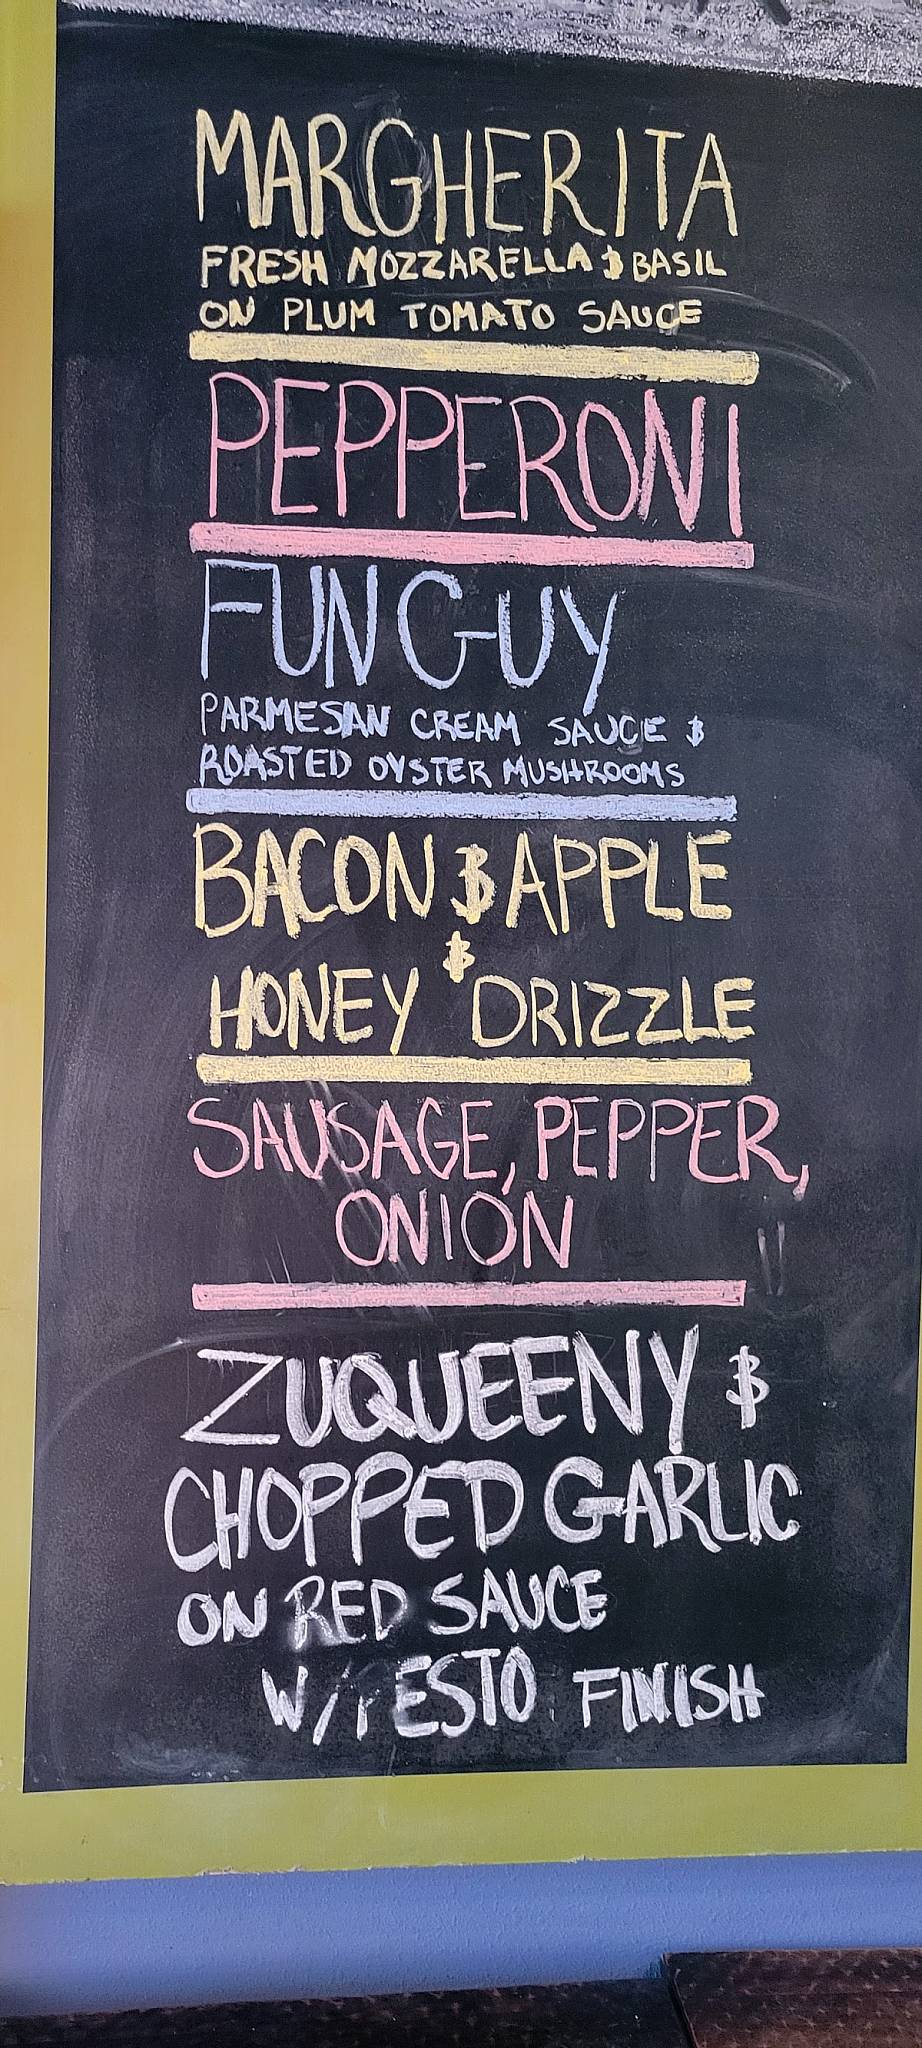 MARGHERITA
FRESH MOZZARELLA & BASIL
ON PLUM TOMATO SAUCE
PEPPERONI
FUN GUY
PARMESAN CREAM SAUCE &
ROASTED OYSTER MUSHROOMS
BACON & APPLE
&
HONEY DRIZZLE
SAUSAGE, PEPPER,
ONION
ZUQUEENY &
CHOPPED GARLIC
ON RED SAUCE
W/PESTO FINISH